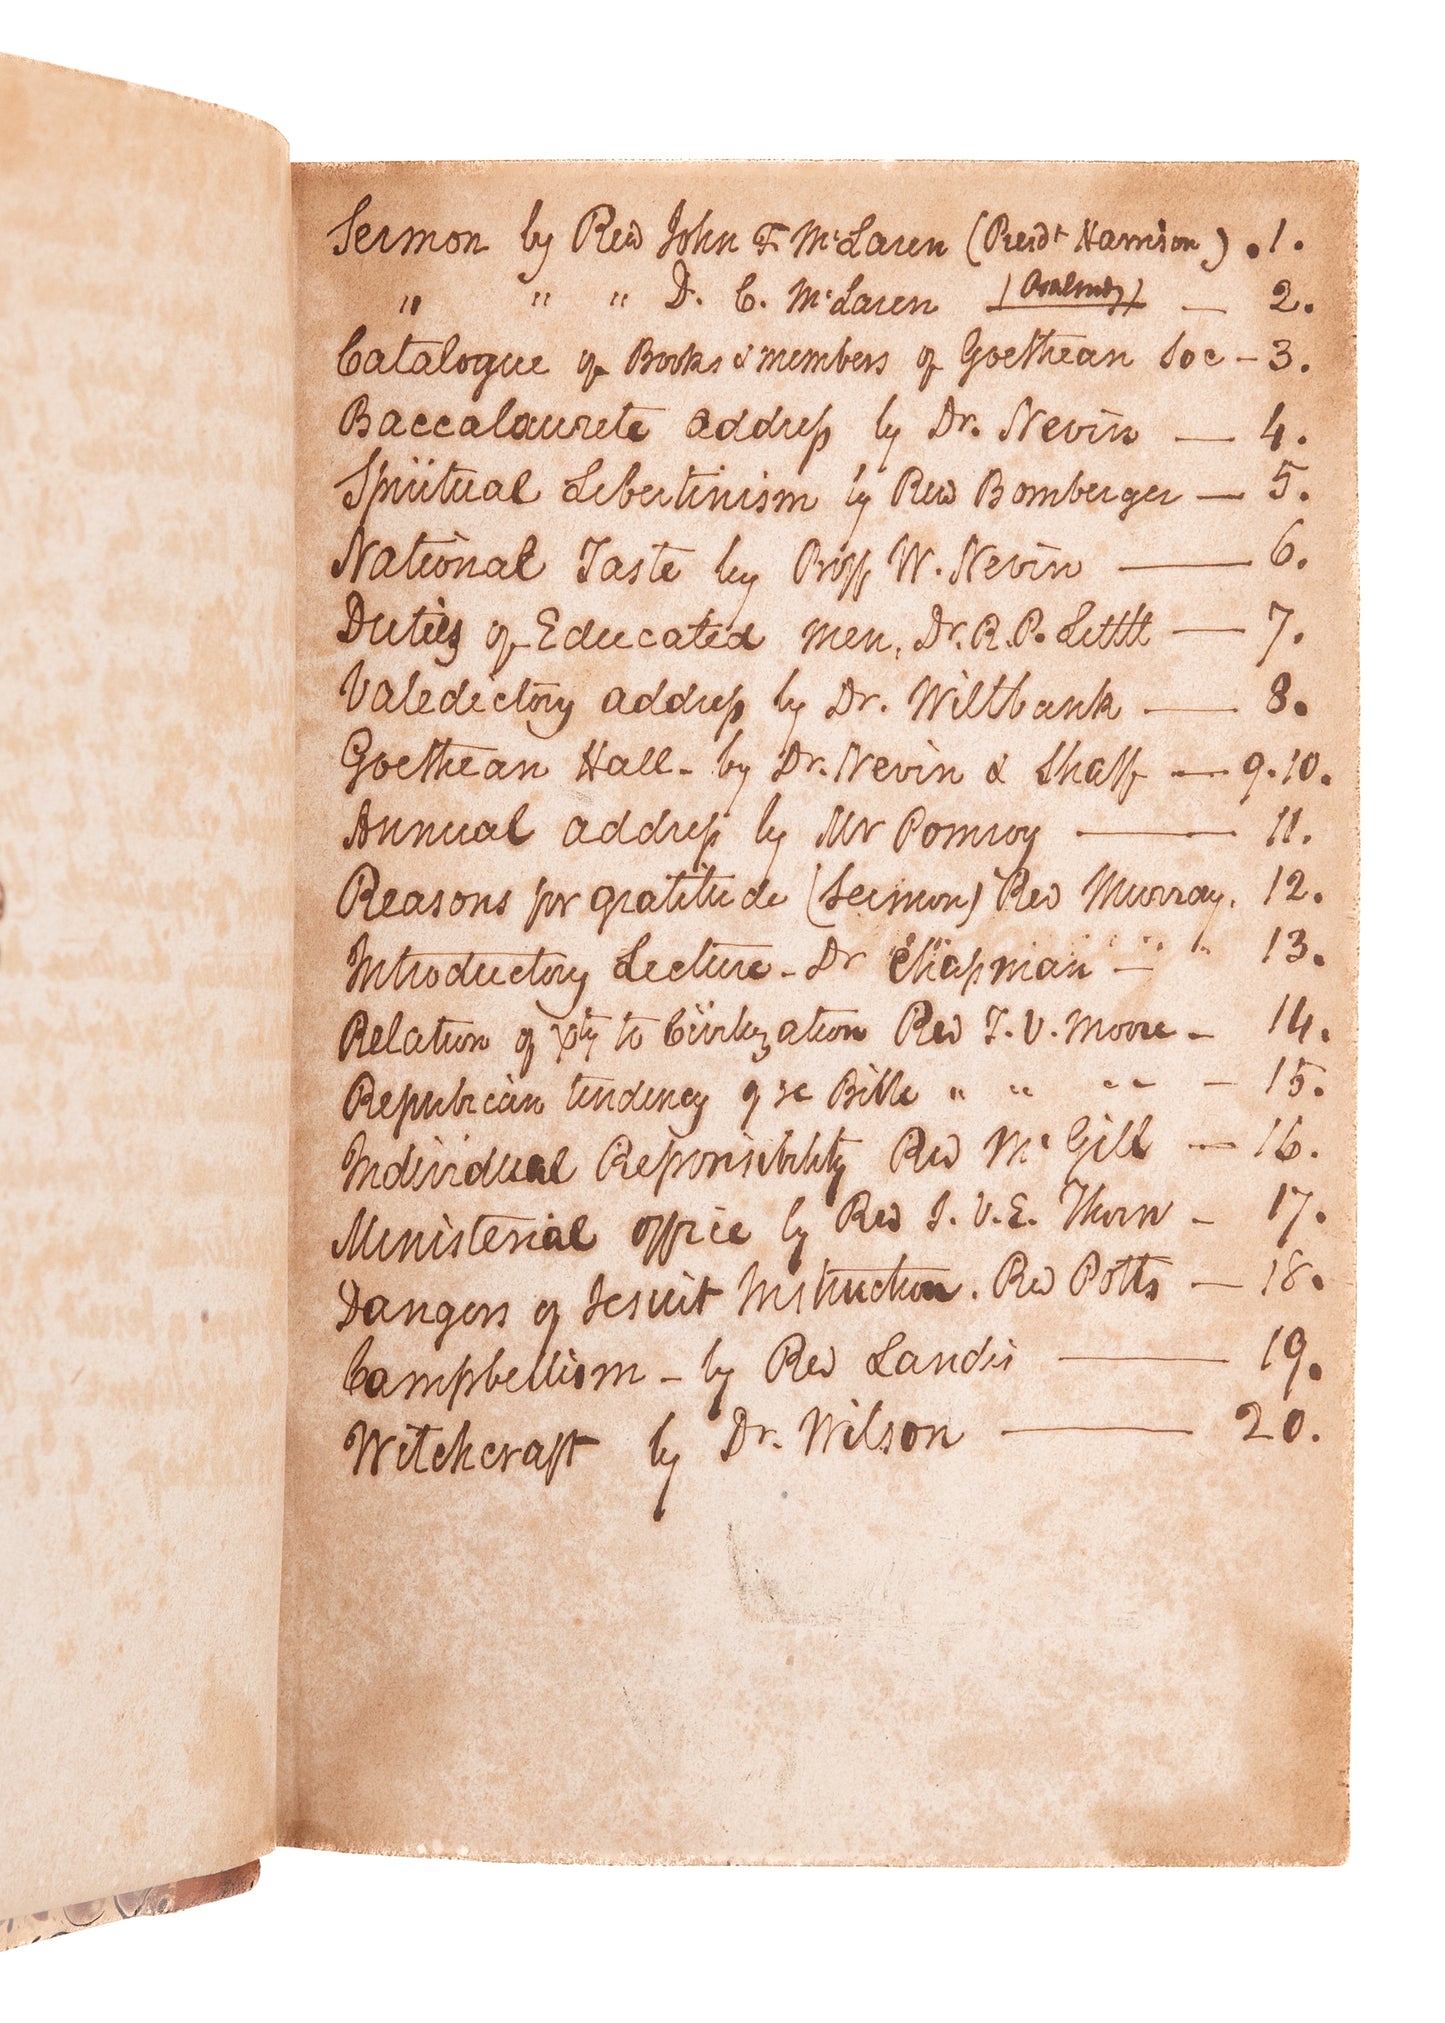 Sermon by Rev John F McLaren (Presdt Harrison) . 1.
" " " D. C. McLaren (Psalmody) — 2.
Catalogue of Books & members of Goethean Soc – 3.
Baccalaurete address by Dr. Nevin — 4.
Spiitual Libertinism by Rev Bomberger — 5.
National Taste by Proff W. Nevin — 6.
Duties of Educated men, Dr. R. P. Little — 7.
Valedictory address by Dr. Wiltbank — 8.
Goethean Hall – by Dr. Nevin & Shaff — 9.10.
Annual address by Mr Pomroy — 11.
Reasons for gratitude (Sermon) Rev Murray. 12.
Introductory Lecture – Dr Chapman — 13.
Relation of Xty to Civilization Rev T. V. Moore – 14.
Republican tendency of ye Bible " " " " – 15.
Individual Reponsibility Rev McGill — 16.
Ministerial office by Rev J. V. E. Thorn – 17.
Dangers of Jesuit Instruction. Rev Potts — 18.
Campbellism – by Rev Landis — 19.
Witchcraft by Dr. Wilson — 20.